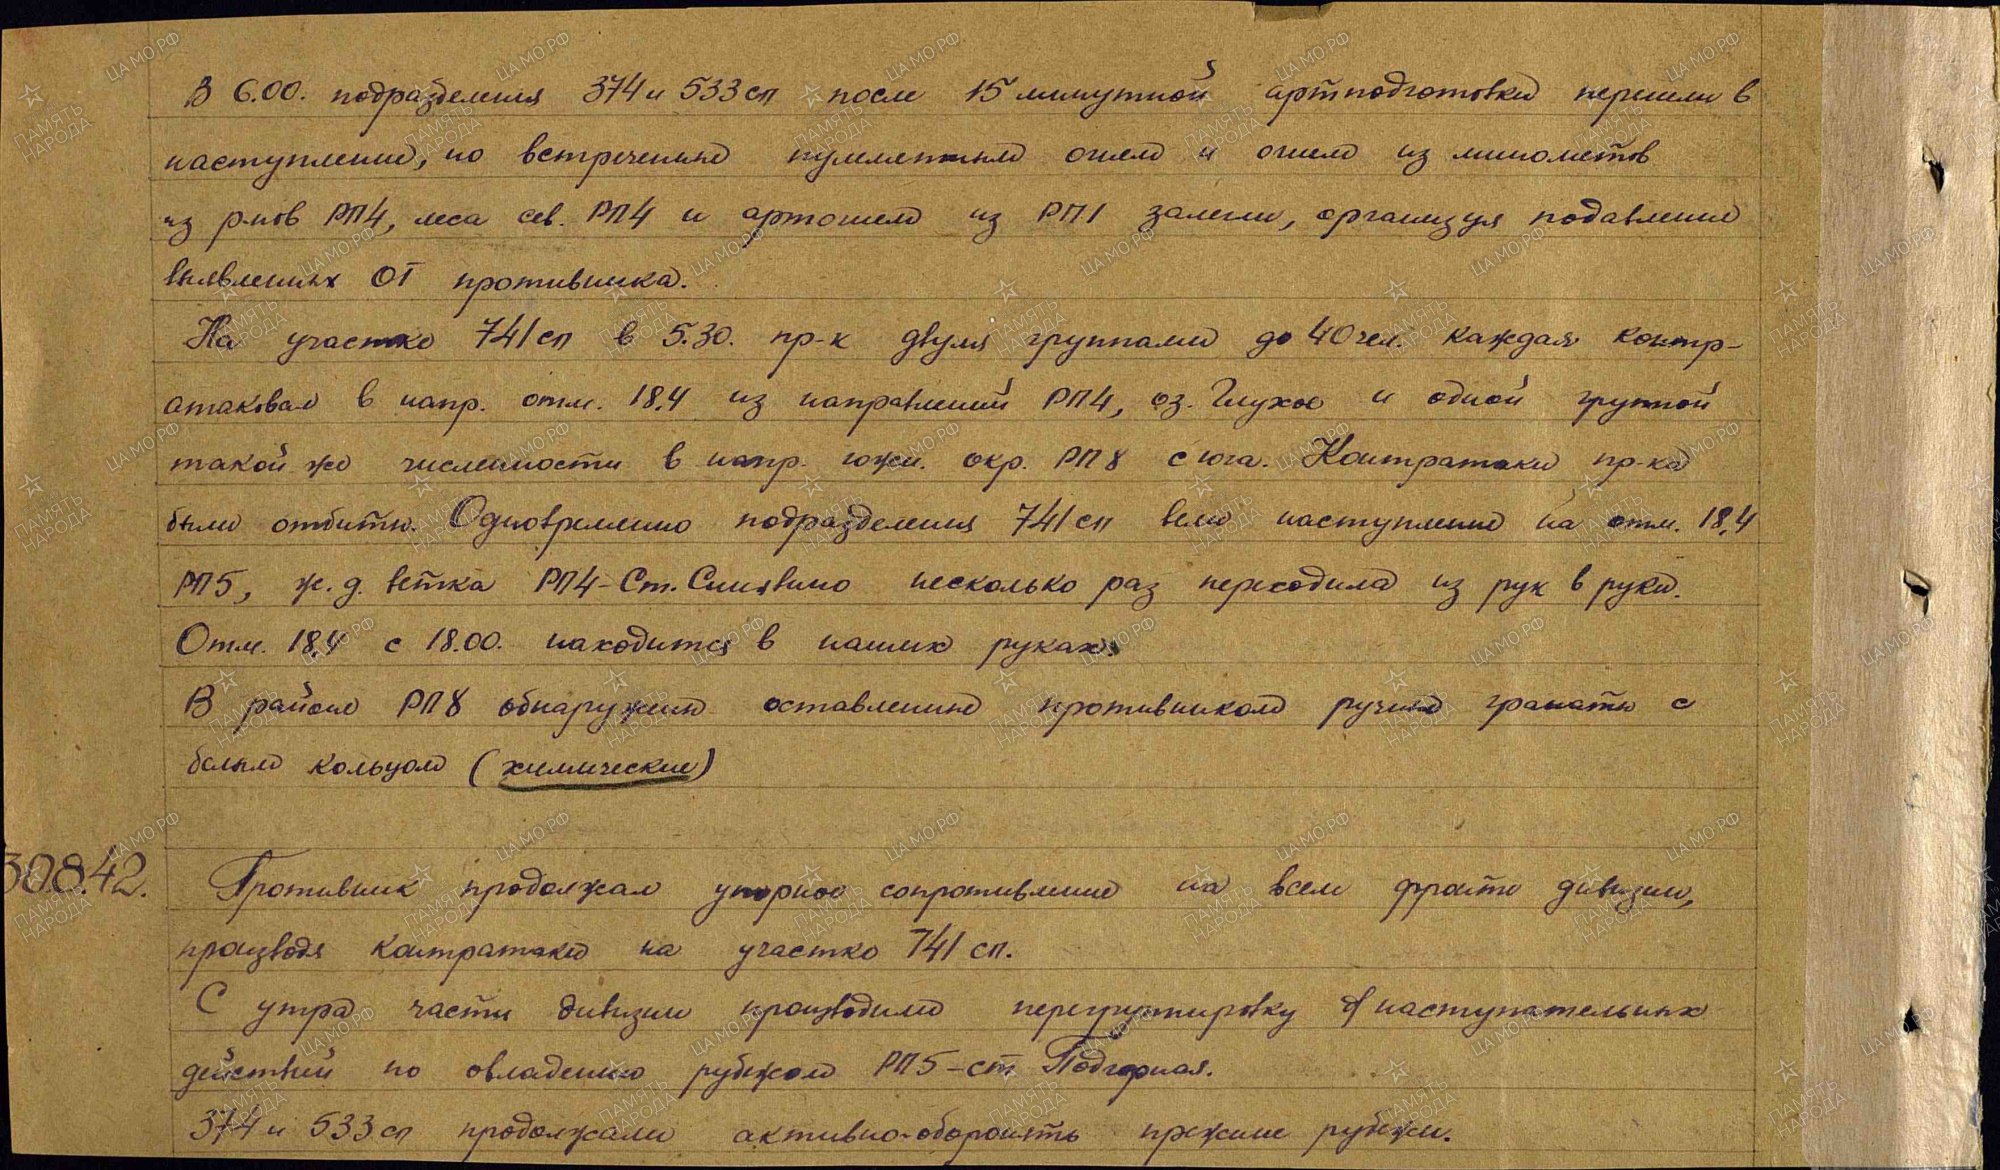 В 6.00. подразделения 374 и 533 сп после 15 минутной артподготовки перешли в
наступление, но встреченные пулеметным огнем и огнем из минометов
из р-нов РП4, леса сев. РП4 и артогнем из РП1 залегли, организуя подавление
выявленных ОТ противника.
На участке 741 сп в 5.30. пр-к двумя группами до 40 чел. каждая контр-
атаковал в напр. отм. 18,4 из направлений РП4, оз. Глухое и одной группой
такой же численности в напр. южн. окр. РП8 с юга. Контратаки пр-ка
были отбиты. Одновременно подразделения 741 сп вели наступление на отм. 18,4
РП5, ж.д. ветка РП4-Ст. Синявино несколько раз переходила из рук в руки.
Отм. 18,4 с 18.00. находится в наших руках.
В районе РП8 обнаружены оставленные противником ручные гранаты с
белым кольцом (химические)
30.8.42.
Противник продолжал упорное сопротивление на всем фронте дивизии,
производя контратаки на участке 741 сп.
С утра части дивизии производили перегруппировку наступательных
действий по овладению рубежом РП5-ст Подгорная.
374 и 533 сп продолжали активно-оборонять прежние рубежи.
ПАМЯТЬ НАРОДА
ЦА МО РФ